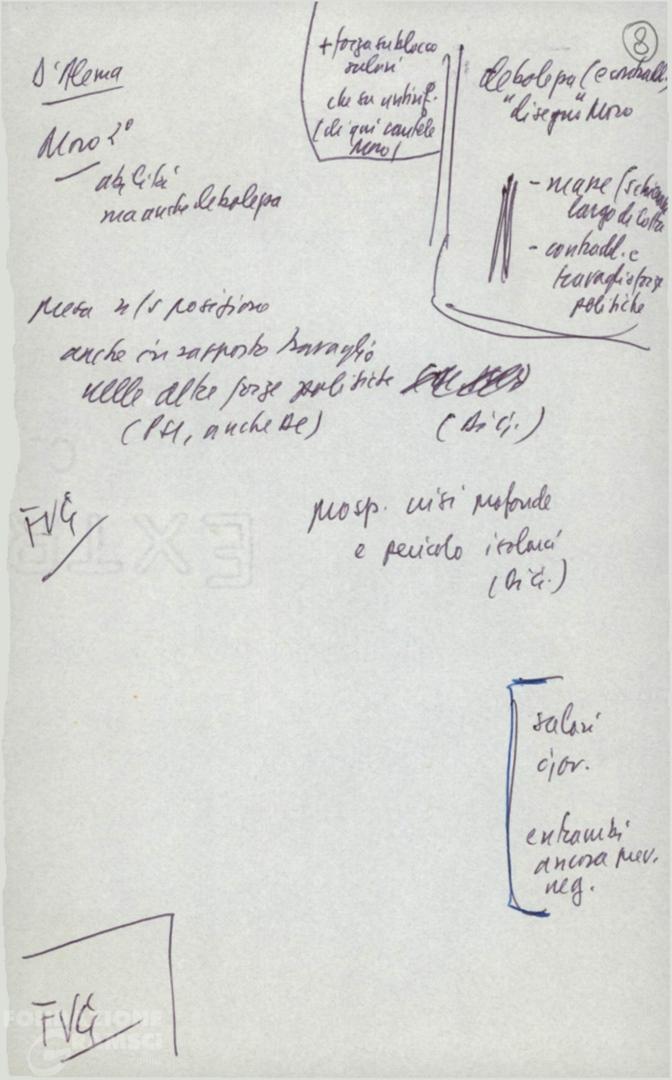 8
D'Alema
Moro 2°
abilità
ma anche debolezza
+ forza su blocco
salari
che su antinf.
(di qui cautele
Moro)
debolezza (e contradd.
"disegni" Moro
- masse (schiera
largo di lotta
- contradd. e
travaglio forze
politiche
presa n/s posizione
anche in rapporto travaglio
nelle altre forze politiche
(PSI, anche DC)
(Dici.)
FVG
prosp. crisi profonde
e pericolo isolarci
(Dici.)
salari
giov.
entrambi
ancora prev.
neg.
FVG
FONDAZIONE
GRAMSCI